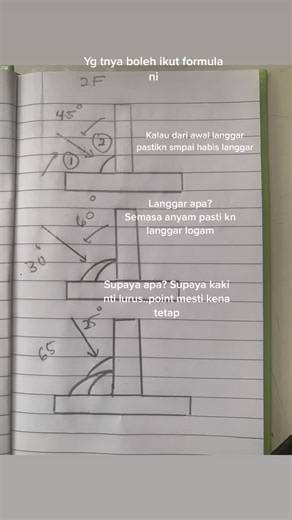 Yg tnya boleh ikut formula
ni
2F
45°
②
①
Kalau dari awal langgar
pastikn smpai habis langgar
Langgar apa?
Semasa anyam pasti kn
langgar logam
60°
30°
Supaya apa? Supaya kaki
nti lurus..point mesti kena
tetap
25°
65